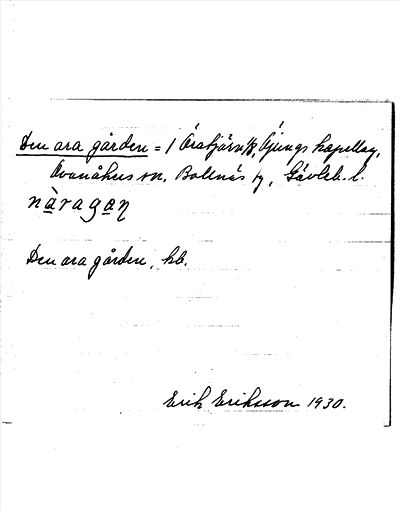 Den ara gården = 1 Öratjärn ⅛, Öjungs kapellag,
Ovanåkers sn, Bollnäs tg, Gävleb. l.
nàragaŋ
Den ara gården, hb.
Erik Eriksson 1930.